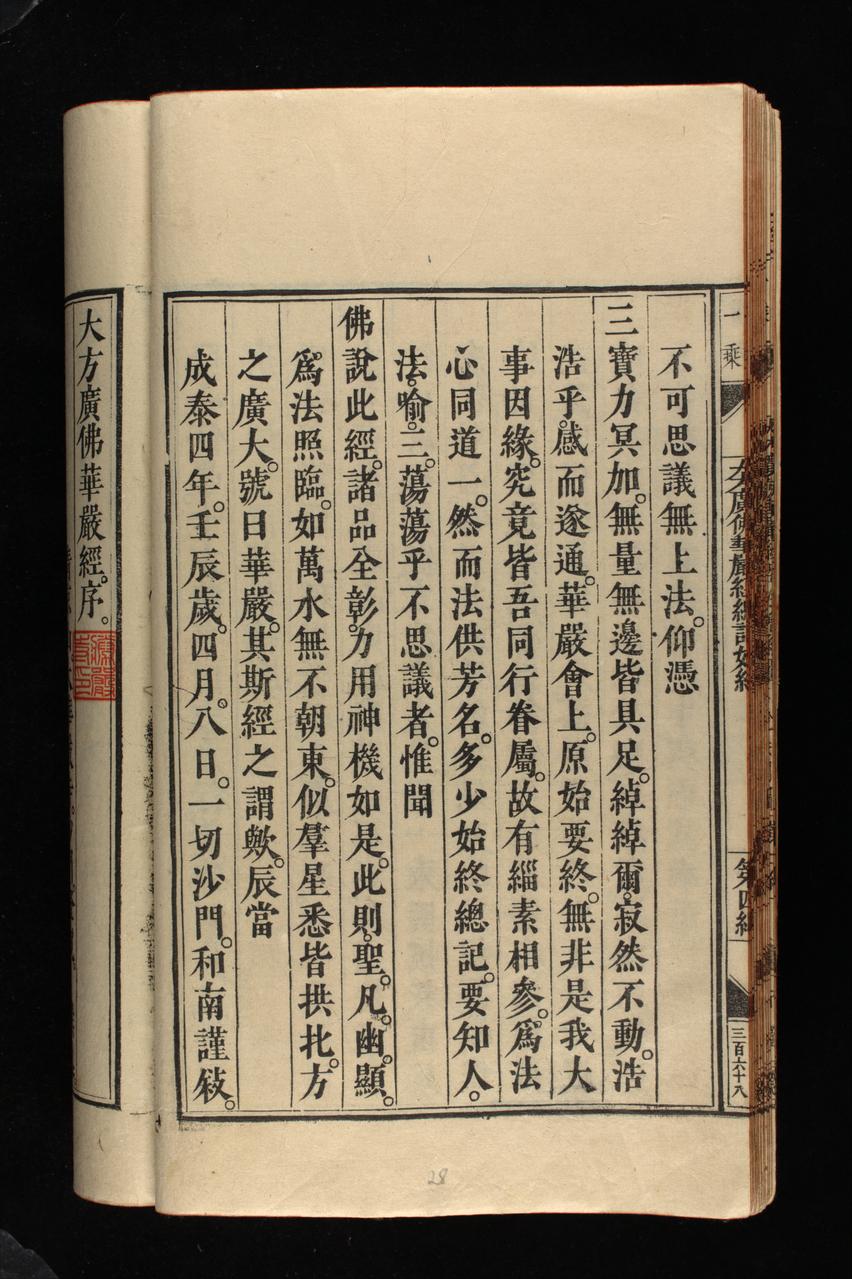 不可思議無上法。仰憑
三寶力冥加。無量無邊皆具足。綽綽爾。寂然不動。浩
浩乎。感而遂通。華嚴會上。原始要終。無非是我大
事因緣。究竟皆吾同行眷屬。故有緇素相參。爲法
心同道一。然而法供芳名。多少始終總記。要知人。
法。喻。三。蕩蕩乎不思議者。惟聞
佛說此經。諸品全彰。力用神機如是。此則。聖。凡。幽。顯。
爲法照臨。如萬水無不朝東。似羣星悉皆拱北。方
之廣大。號曰華嚴。其斯經之謂歟。辰當
成泰四年。壬辰歲。四月。八日。一切沙門。和南謹敍。
大方廣佛華嚴經。序。
一乘
第四
三百六十八
28